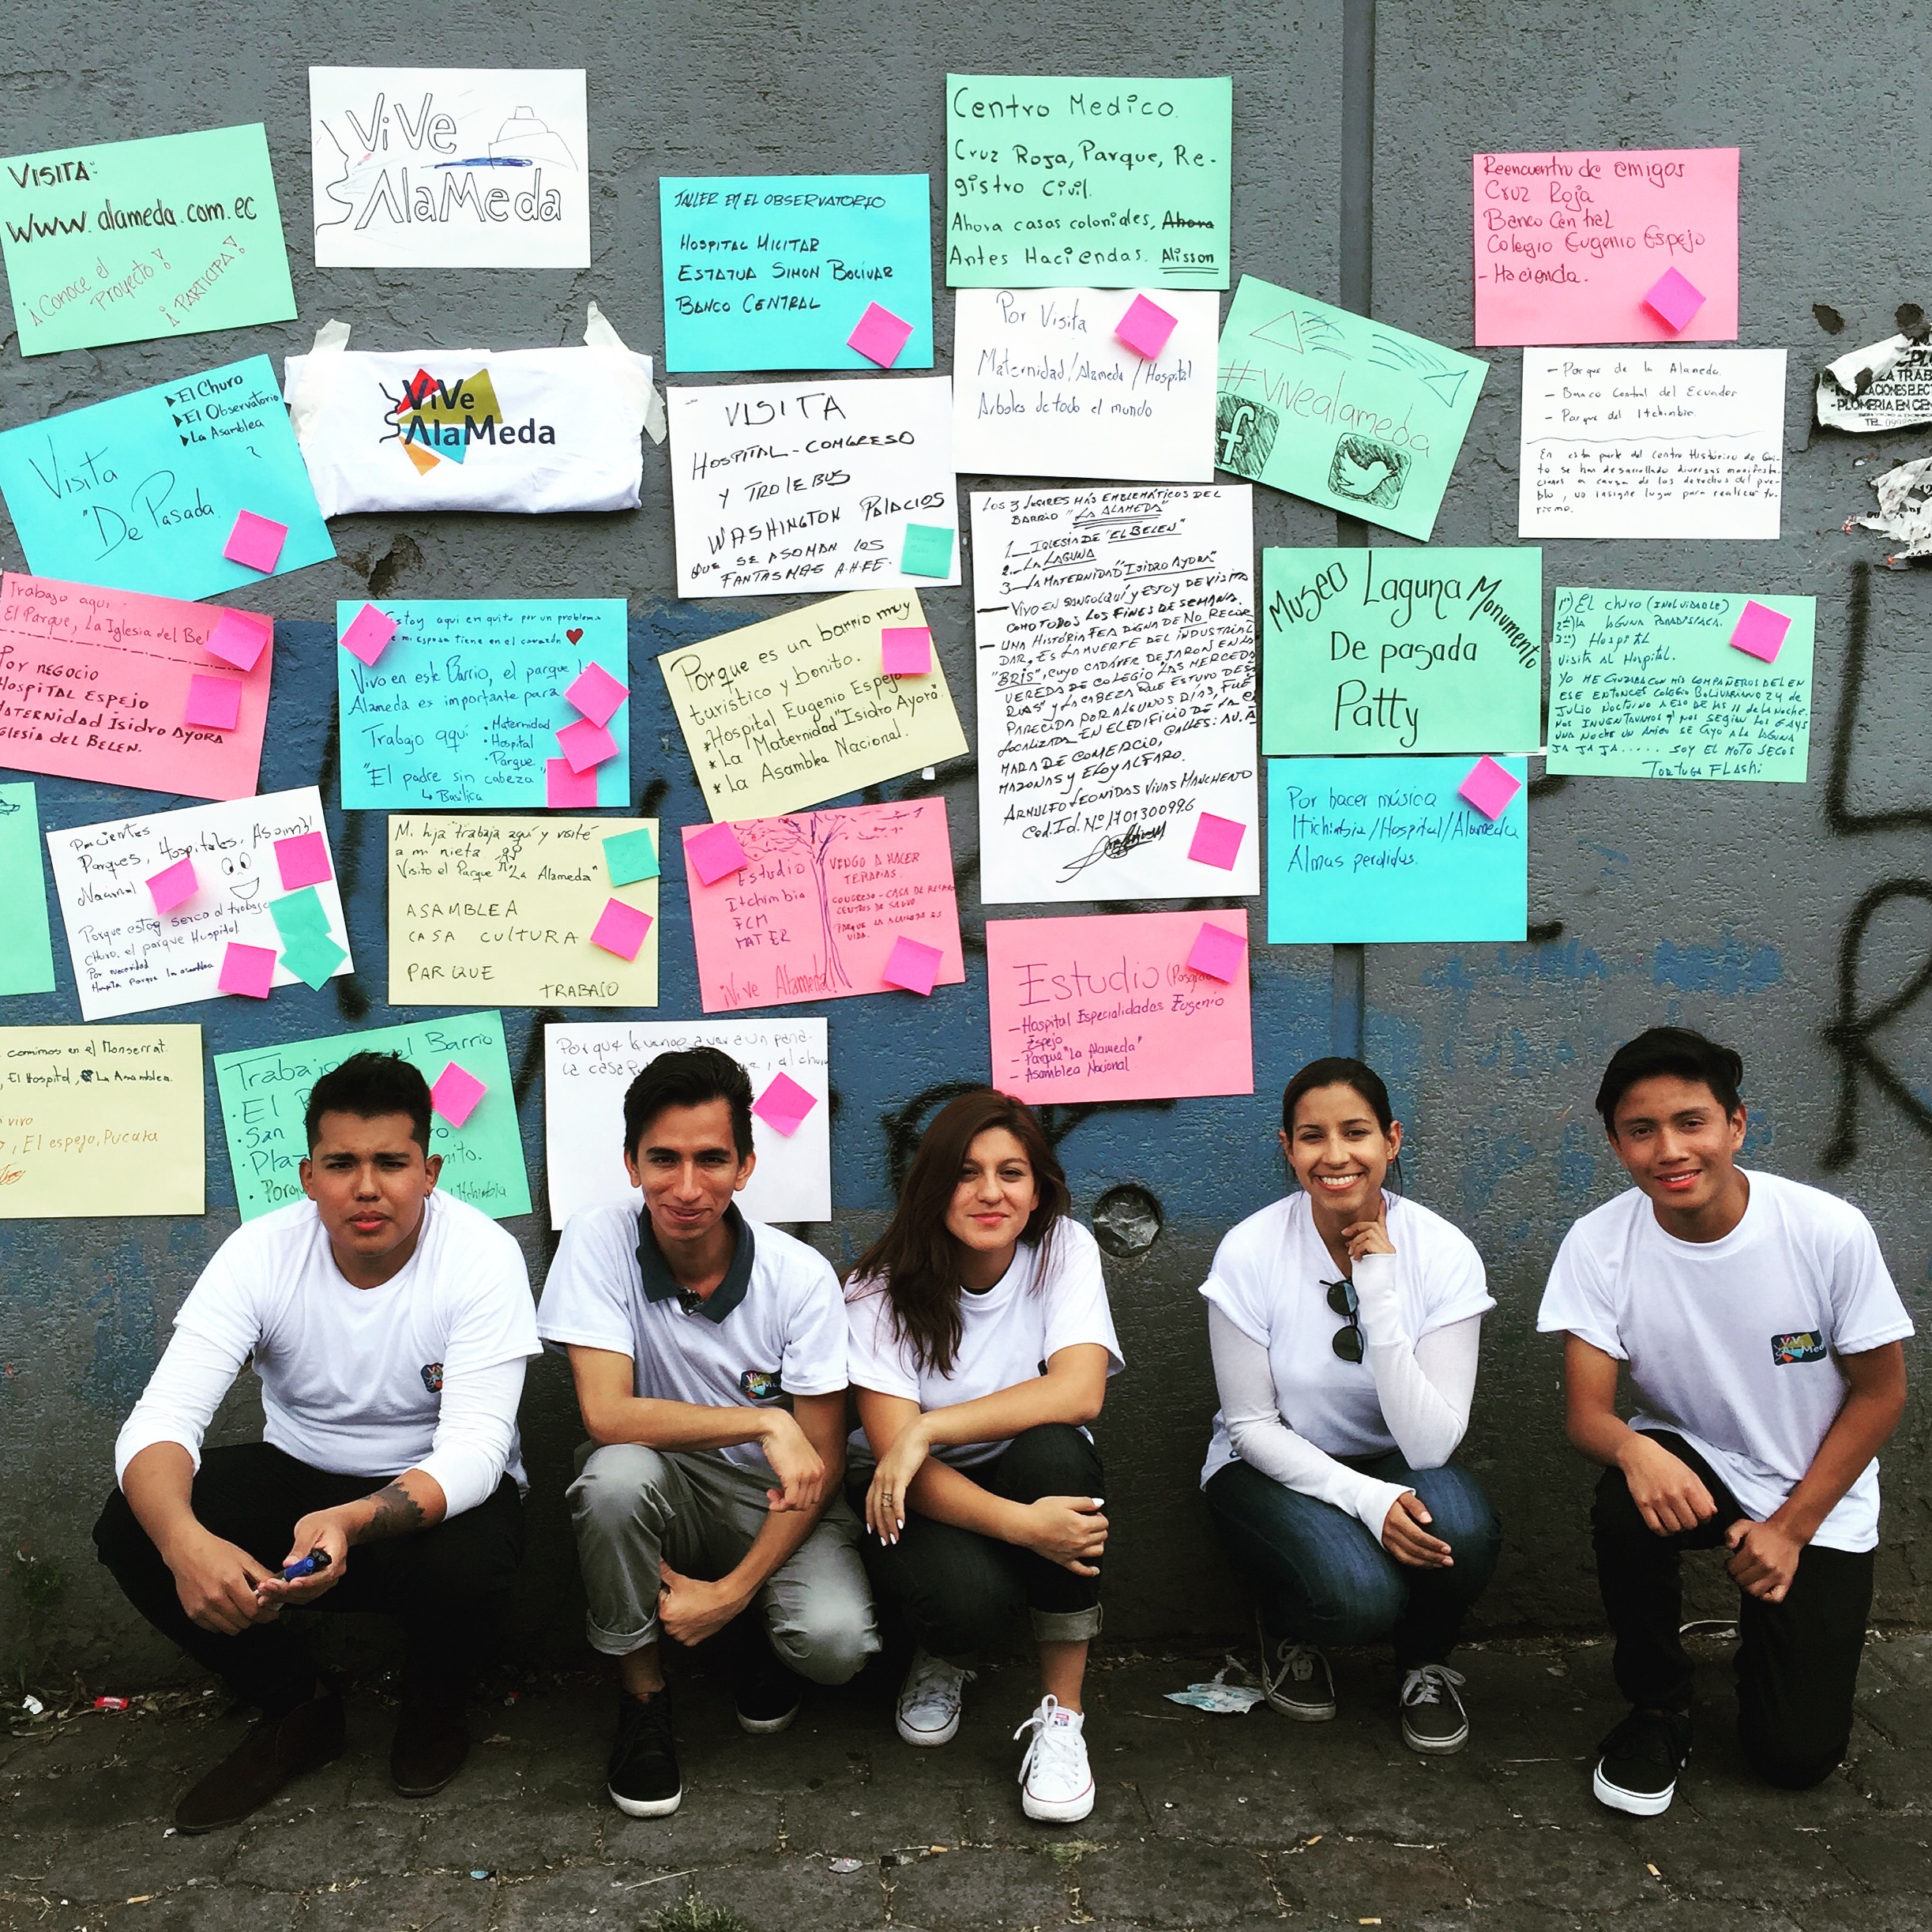 VISITA:
www.alameda.com.ec
¡Conoce el
Proyecto!
¡PARTICIPA!
ViVe
AlaMeda
TALLER EN EL OBSERVATORIO
HOSPITAL MILITAR
ESTATUA SIMON BOLÍVAR
BANCO CENTRAL
Centro Medico.
Cruz Roja, Parque, Re-
gistro Civil.
Ahora casas coloniales, Ahora
Antes Haciendas. Alisson
Reencuentro de amigos
Cruz Roja
Banco Central
Colegio Eugenio Espejo
- Hacienda.
El Churo
El Observatorio
La Asamblea
?
Visita
"De Pasada
ViVe
AlaMeda
VISITA
HOSPITAL - CONGRESO
Y TROLEBUS
WASHINGTON PALACIOS
QUE SE ASOMAN LOS
FANTASMAS
Por Visita
Maternidad/Alameda/Hospital
Arboles de todo el mundo
#Vivealameda
f
- Parque de la Alameda.
- Banco Central del Ecuador
- Parque del Itchimbia.
En esta parte del centro Histórico de Qui-
to se han desarrollado diversas manifesta-
ciones a causa de los derechos del pue-
blo, un insigne lugar para realizar tu-
rismo.
Trabajo aquí.
El Parque, La Iglesia del Bel
Por NEGOCIO
HOSPITAL ESPEJO
MATERNIDAD ISIDRO AYORA
IGLESIA DEL BELEN.
Estoy aqui en quito por un problema
mi esposa tiene en el corazón
Vivo en este Barrio, el parque
Alameda es importante para
Trabajo aquí
• Maternidad
• Hospital
• Parque.
"El padre sin cabeza"
↳ Basílica
Porque es un barrio muy
turistico y bonito.
* Hospital Eugenio Espejo
* La Maternidad "Isidro Ayora".
* La Asamblea Nacional.
LOS 3 LUGARES MÁS EMBLEMÁTICOS DEL
BARRIO "LA ALAMEDA"
1._ IGLESIA DE "EL BELEN"
2._ LA LAGUNA
3._ LA MATERNIDAD "ISIDRO AYORA"
— VIVO EN SANGOLQUÍ Y ESTOY DE VISITA
COMO TODOS LOS FINES DE SEMANA.
— UNA HISTORIA FEA DIGNA DE NO RECOR
DAR, ES LA MUERTE DEL INDUSTRIAL
"BRIS", CUYO CADÁVER DEJARON EN LA
VEREDA DE COLEGIO "LAS MERCEDA
RIAS" Y LA CABEZA QUE ESTUVO DESA
PARECIDA POR ALGUNOS DIAS, FUE
LOCALIZADA EN EL EDIFICIO DE LA
MARA DE COMERCIO, CALLES: AV. A
MAZONAS Y ELOY ALFARO.
ARNULFO LEONIDAS VIVAS MANCHENO
Ced.Id. Nº 170130099.6
Museo Laguna Monumento
De pasada
Patty
1º) EL CHURO (INOLVIDABLE)
2º) LA LAGUNA PARADISIACA.
3º) HOSPITAL
VISITA AL HOSPITAL.
YO ME GUIABA CON MIS COMPAÑEROS DEL EN
ESE ENTONCES COLEGIO BOLIVARIANO 24 DE
JULIO NOCTURNO A ESO DE LAS 11 DE LA NOCHE.
UNA NOCHE UN AMIGO SE CAYO A LA LAGUNA
JA JA JA...... SOY EL MOTO SECOS
TORTUGA FLASH
Pacientes
Parques, Hospitales, Asambl
Nacional
Porque estoy serca al trabajo
Churo, el parque Hospital
Por necesidad
Hospital Parque la asamblea
Mi hija trabaja aquí y visité
a mi nieta
Visito el Parque "La Alameda"
ASAMBLEA
CASA CULTURA
PARQUE
TRABAJO
Estudio
Itchimbia
FCM
MATER
VENGO A HACER
TERAPIAS.
CENTROS DE SALUD
PORQUE LA ALAMEDA ES
VIDA.
¡Vive Alameda!
Por hacer música
Itichimbia/Hospital/Alameda
Almas perdidas.
Estudio
- Hospital Especialidades Eugenio
Espejo
- Parque "La Alameda"
- Asamblea Nacional
comimos en el Monserrat.
, El Hospital, La Asamblea.
vivo
, El espejo, Pucara
Trabajo el Barrio
• El
• San
• Plaz
• Parqu Itchimbia
Porque vengo a ver a un pana
La casa , el churo
ViVe
AlaMeda